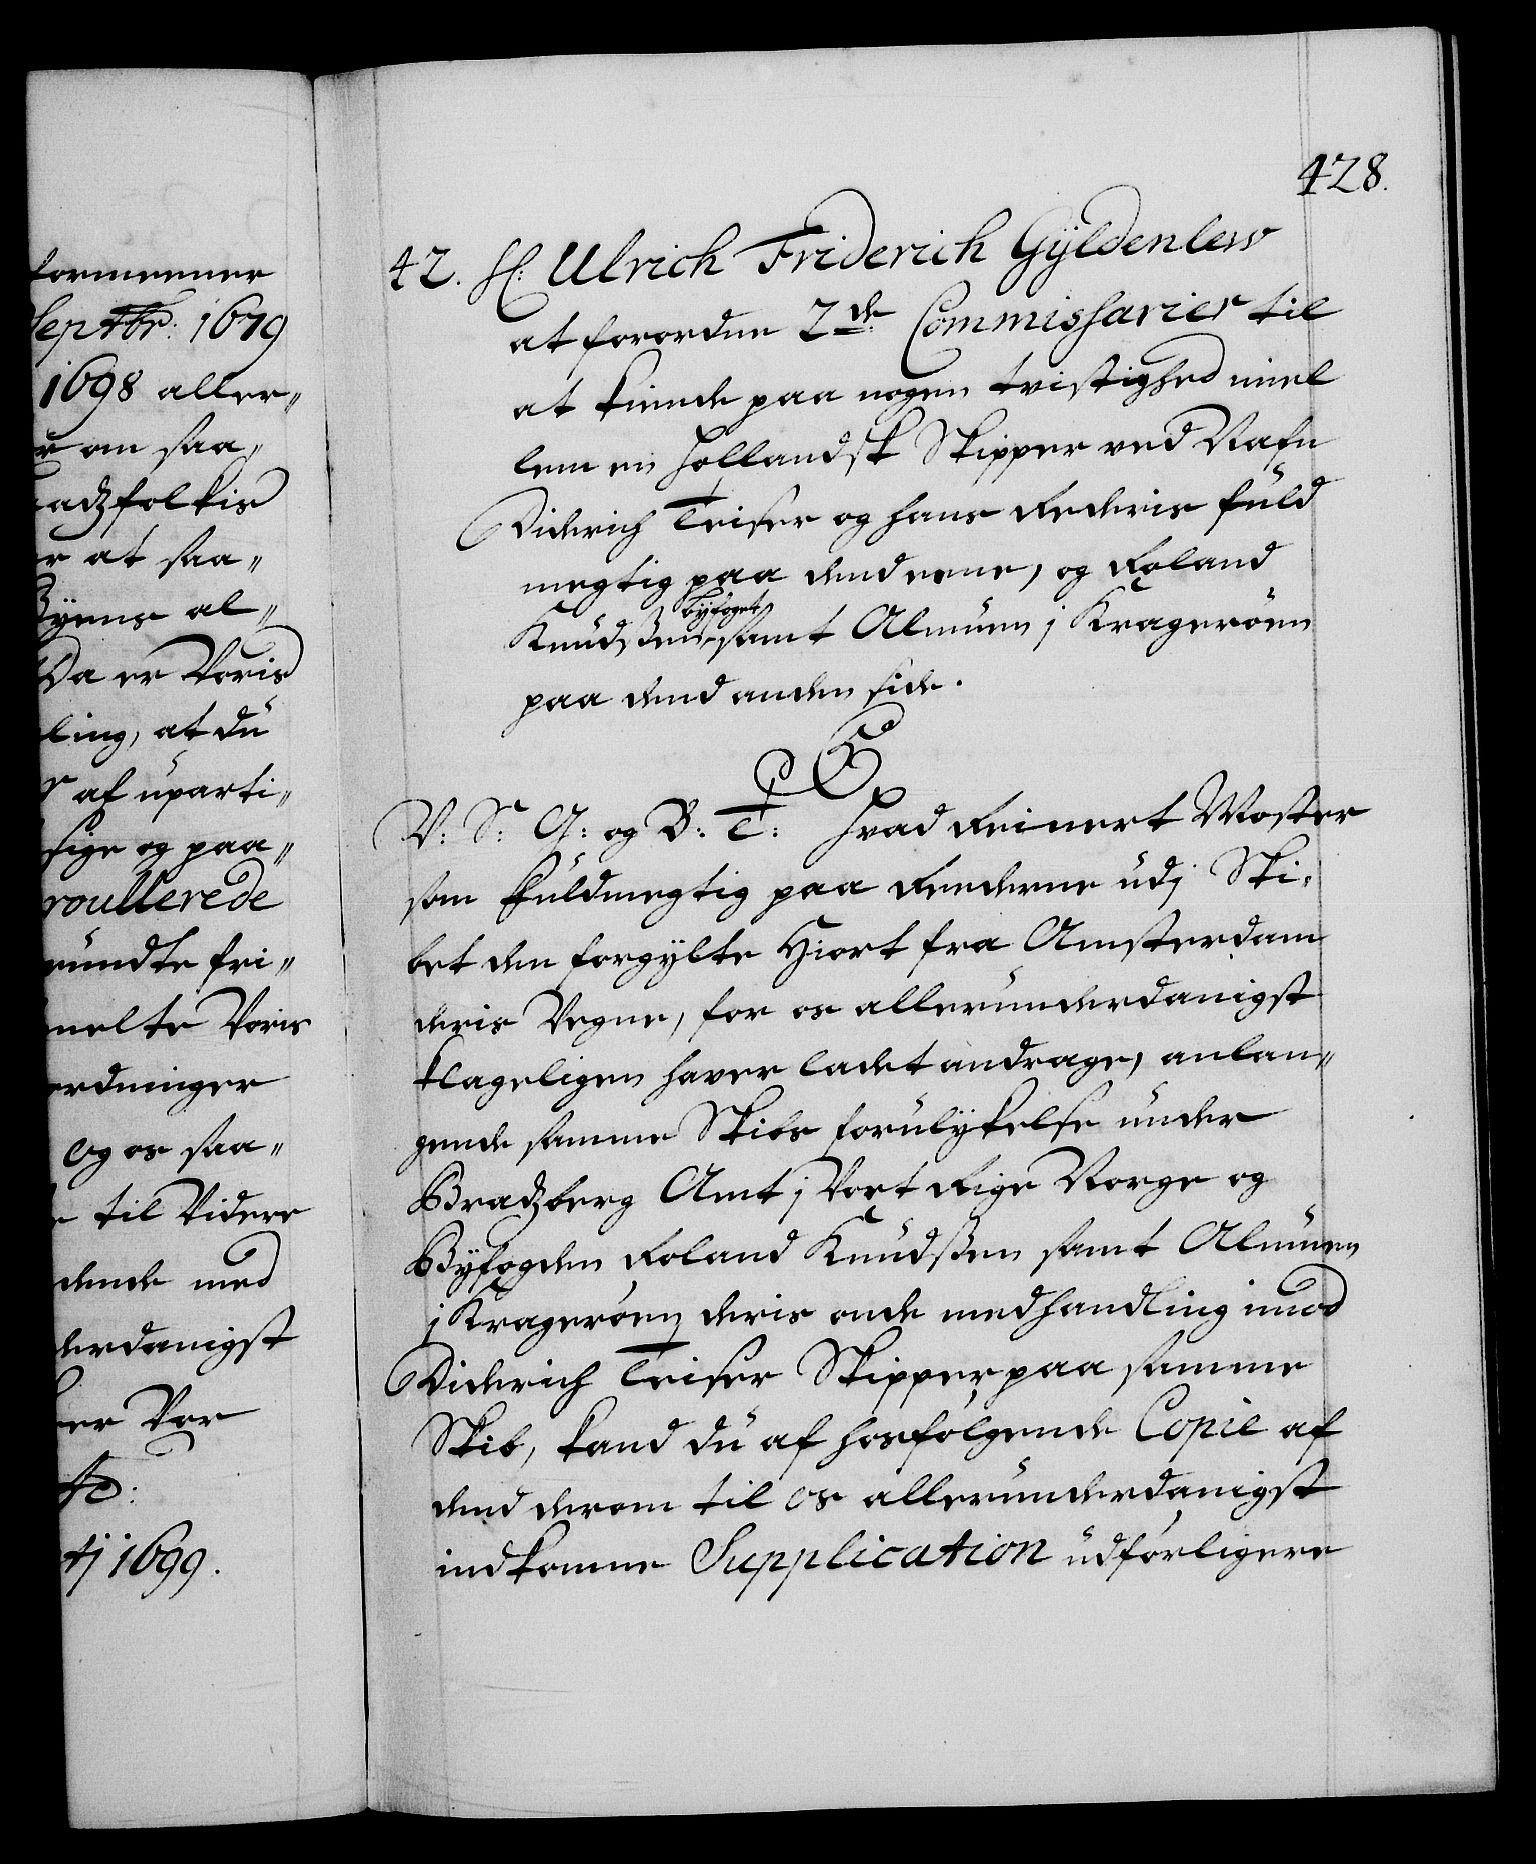 formeener
Septbr: 1679
1698 aller„
r om saa„
adzfolkis
r at saa„
Byens al„
Da er Voris
ling, at du
af uparti„
sige og paa„
roullerede
ründte fri„
melte Voris
ordninger
og os saa„
til Videre
dende med
derdanigst
er Vor
tc:
tj 1699.
428.
42. H: Ulrich Friderich Gÿldenlew
at forordne 2de Commissarier til
at kiende paa nogen tvistighed imel
lem en Hollandsk Skipper ved Nafn
Diderich Teiser og hans Rederis fuld
megtig paa dend eene, og Roland
byfoget
Knudssen samt Almuen j Kragerøen
paa dend anden side.
C5
V: S: G: og B: T: Hvad Reinert Woster
som fuldmegtig paa Reederne udj Ski„
bet den forgylte Hiort fra Amsterdam
deris Vegne, for os allerunderdanigst
klageligen haver ladet andrage, anlan„
gende samme Skibs forulykelse under
Bradzberg Amt j Vort Rige Norge og
Byfogden Roland Knudssen samt Almuen
j Kragerøen deris onde medhandling imod
Diderich Teiser Skipper paa samme
Skib, kand du af hosfølgende Copie af
dend derom til os allerunderdanigst
indkomne Supplication udførligere